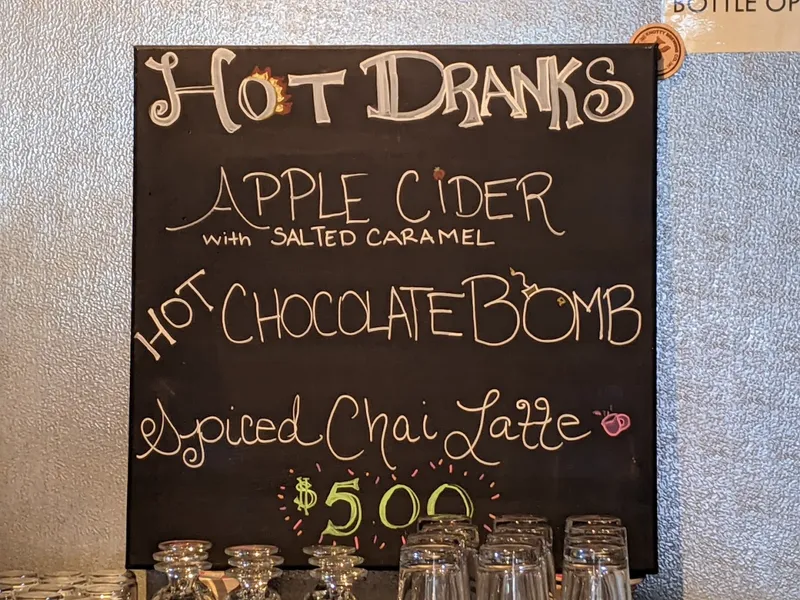 BOTTLE OP
HOT DRANKS
APPLE CIDER
with SALTED CARAMEL
HOT CHOCOLATE BOMB
Spiced Chai Latte
$5.00